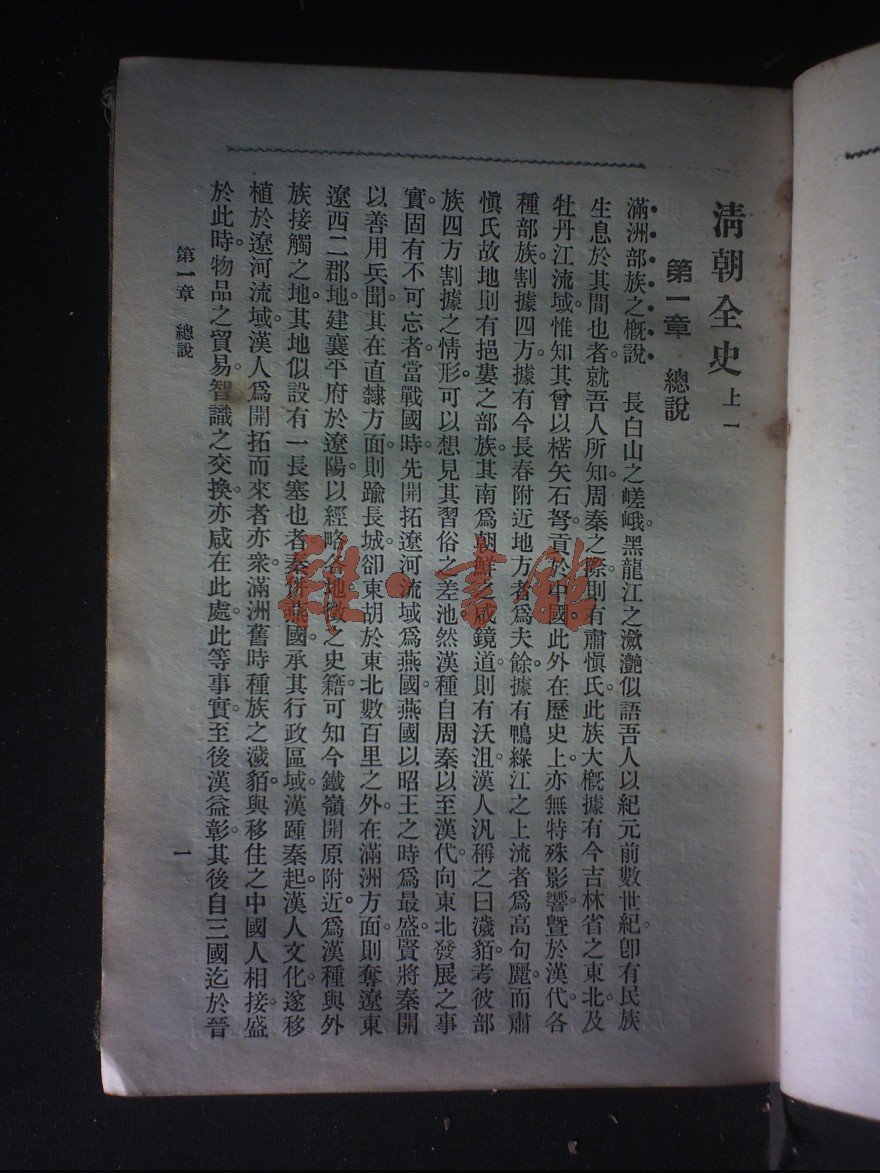 清朝全史 上一
第一章 總說
滿洲部族之概說 長白山之嵯峨。黑龍江之瀲灔似語吾人以紀元前數世紀。卽有民族
生息於其間也。者就吾人所知。周秦之際。則有肅愼氏。此族大概據有今吉林省之東北。及
牡丹江流域。惟知其曾以楛矢石弩。貢於中國。此外在歷史上。亦無特殊影響。曁於漢代。各
種部族。割據四方。據有今長春附近地方者。爲夫餘。據有鴨綠江之上流者。爲高句麗。而肅
愼氏故地則有挹婁之部族。其南爲朝鮮之咸鏡道。則有沃沮。漢人汎稱之曰濊貊。考彼部
族四方割據之情形。可以想見其習俗之差池。然漢種自周秦以至漢代。向東北發展之事
實。固有不可忘者。當戰國時。先開拓遼河流域。爲燕國。燕國以昭王之時爲最盛。賢將秦開
以善用兵聞。其在直隸方面。則踰長城。卻東胡於東北數百里之外。在滿洲方面。則奪遼東
遼西二郡地。建襄平府於遼陽。以經略各地。徵之史籍。可知今鐵嶺開原附近。爲漢種與外
族接觸之地。其地似設有一長塞也。者秦併燕國。承其行政區域。漢踵秦起。漢人文化。遂移
植於遼河流域。漢人爲開拓而來者亦衆。滿洲舊時種族之濊貊。與移住之中國人相接。盛
於此時。物品之貿易。智識之交換。亦咸在此處。此等事實。至後漢益彰。其後自三國迄於晉
第一章 總說
一
雜·書館